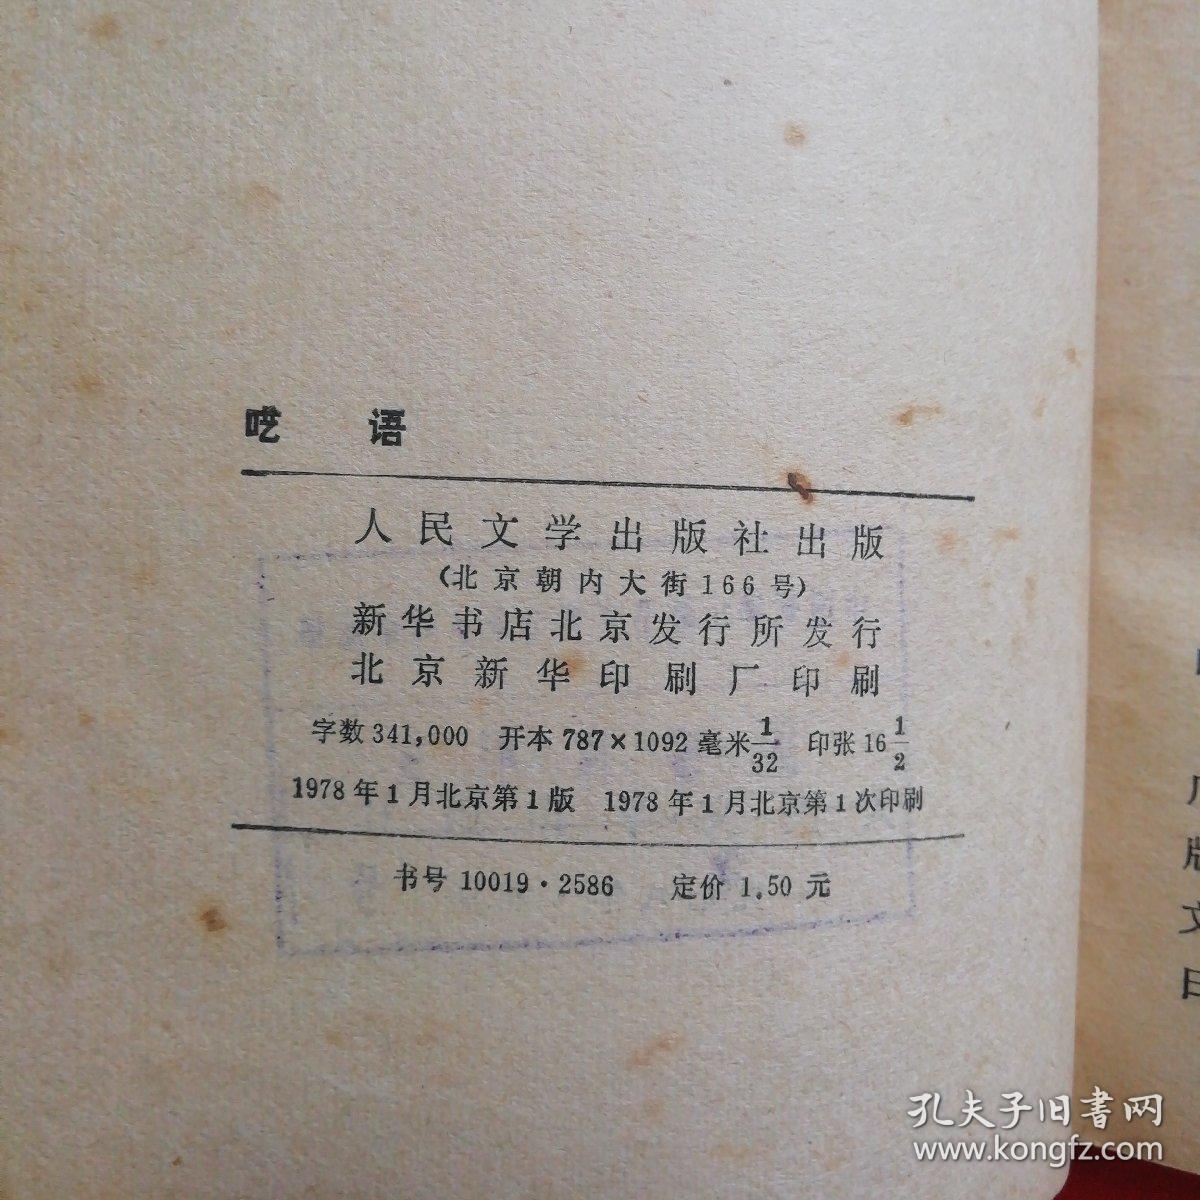 呓 语
人民文学出版社出版
(北京朝内大街166号)
新华书店北京发行所发行
北京新华印刷厂印刷
字数 341,000 开本 787×1092 毫米 1/32 印张 16 1/2
1978年1月北京第1版 1978年1月北京第1次印刷
书号 10019·2586 定价 1.50 元
版
文
孔夫子旧書网
www.kongfz.com